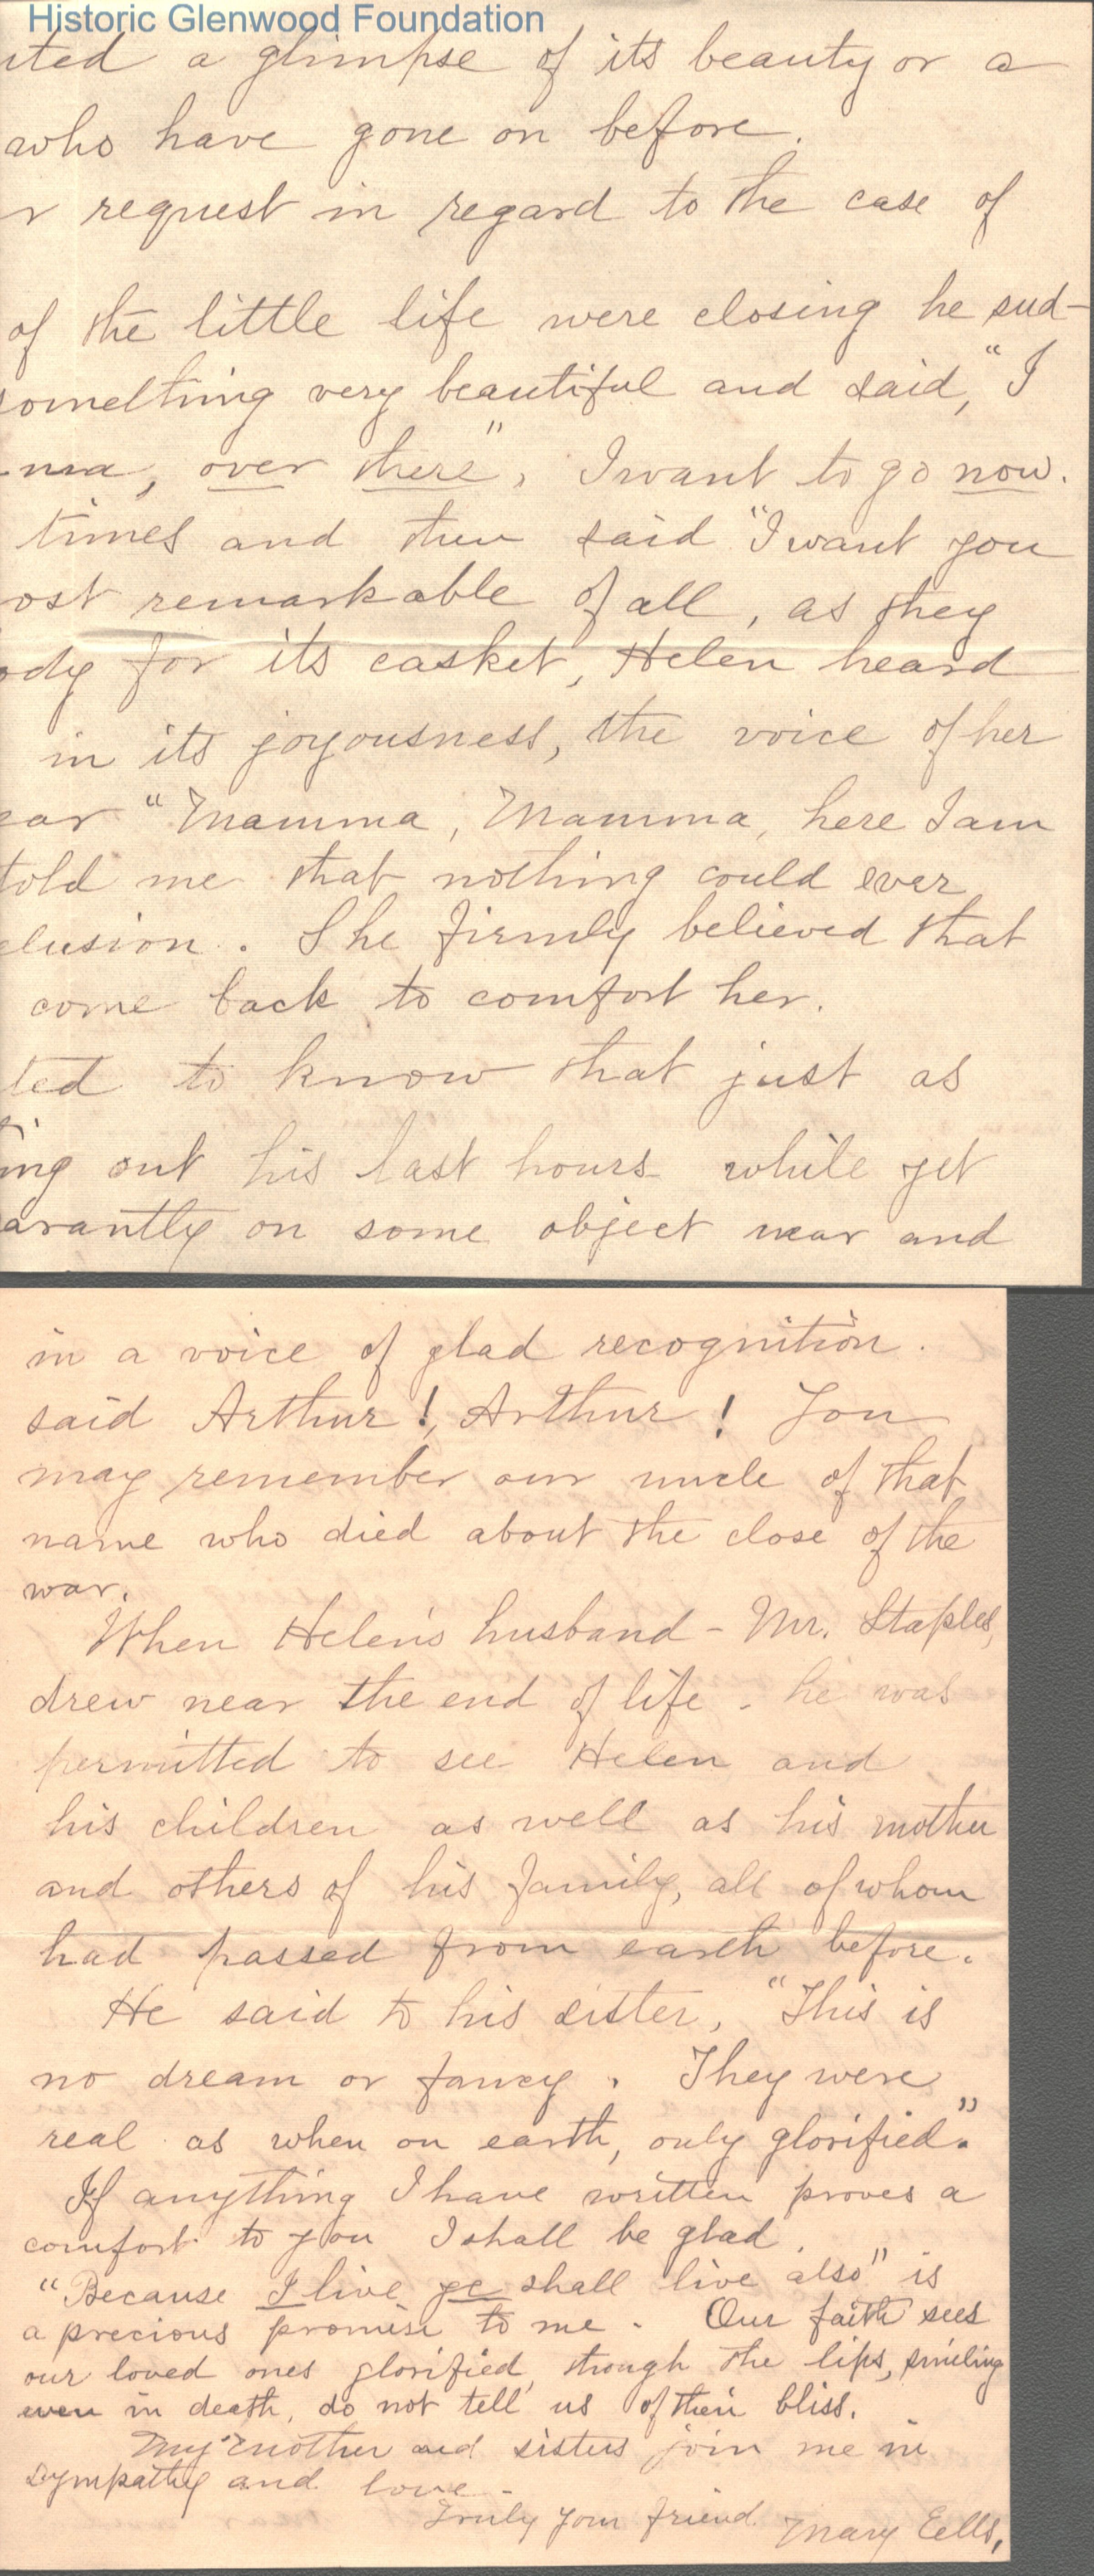 Historic Glenwood Foundation
ited a glimpse of its beauty or a
who have gone on before.
r request in regard to the case of
of the little life were closing he sud-
something very beautiful and said, "I
ma, over there", I want to go now.
times and then said "I want you
ost remarkable of all, as they
ody for its casket, Helen heard
in its joyousness, the voice of her
ear "Mamma, Mamma, here I am
told me that nothing could ever
elusion. She firmly believed that
come back to comfort her.
ted to know that just as
ing out his last hours while yet
arantly on some object near and
in a voice of glad recognition.
said Arthur!, Arthur! You
may remember our uncle of that
name who died about the close of the
war.
When Helen's husband - Mr. Staples,
drew near the end of life - he was
permitted to see Helen and
his children as well as his mother
and others of his family, all of whom
had passed from earth before.
He said to his sister, "This is
no dream or fancy. They were
real as when on earth, only glorified."
If anything I have written proves a
comfort to you I shall be glad.
"Because I live ye shall live also" is
a precious promise to me. Our faith sees
our loved ones glorified, though the lips, smiling
even in death, do not tell us of their bliss.
My mother and sisters join me in
sympathy and love -
Truly your friend
Mary Eells,